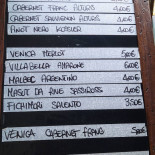 CABERNET FRANC RONS 4,00€
CABERNET SAUVIGNON RONS 4,00€
PINOT NERO KOFLER 4,00€
VENICA MERLOT 5,00€
VILLABELLA AMARONE 6,00€
MALBEC ARGENTINO 4,00€
MASOT DA RIVE SASSIROSS 4,00€
FICHIMORI SALENTO 3,50€
VENICA CABERNET FRANC 5,00€